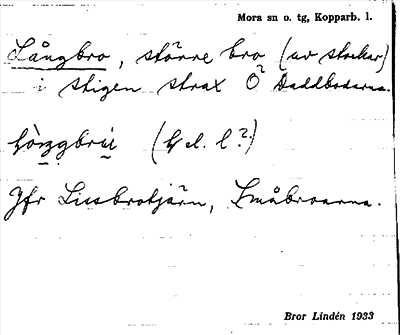 Mora sn o. tg, Kopparb. l.
Långbro, större bro (av stockar)
i stigen strax Ö Daddbodarna.
(h el. l?)
Jfr Lissbrotjärn, Småbroarna.
Bror Lindén 1933